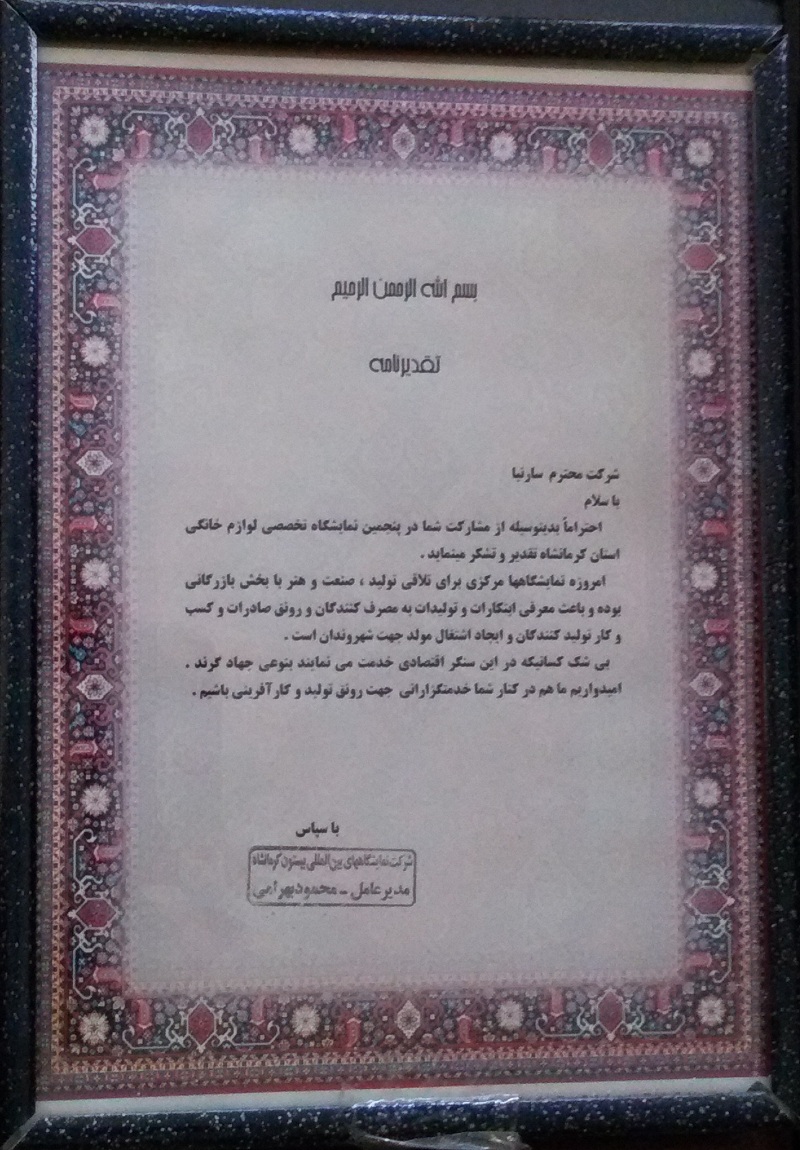 بسم الله الرحمن الرحیم
تقدیرنامه
شرکت محترم سارنیا
با سلام
احتراماً بدینوسیله از مشارکت شما در پنجمین نمایشگاه تخصصی لوازم خانگی
استان کرمانشاه تقدیر و تشکر مینماید .
امروزه نمایشگاهها مرکزی برای تلاقی تولید ، صنعت و هنر با بخش بازرگانی
بوده و باعث معرفی ابتکارات و تولیدات به مصرف کنندگان و رونق صادرات و کسب
و کار تولید کنندگان و ایجاد اشتغال مولد جهت شهروندان است .
بی شک کسانیکه در این سنگر اقتصادی خدمت می نمایند بنوعی جهاد گرند .
امیدواریم ما هم در کنار شما خدمتگزارانی جهت رونق تولید و کارآفرینی باشیم .
با سپاس
شرکت نمایشگاههای بین المللی بیستون کرمانشاه
مدیر عامل - محمود بهرامی